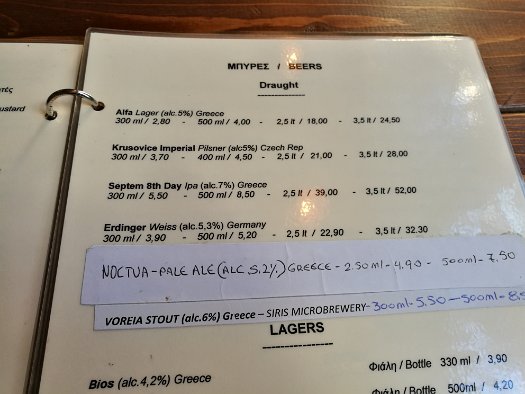 ΜΠΥΡΕΣ / BEERS
Draught
Alfa Lager (alc.5%) Greece
300 ml / 2,80 - 500 ml / 4,00 - 2,5 lt / 18,00 - 3,5 lt / 24,50
Krusovice Imperial Pilsner (alc5%) Czech Rep
300 ml / 3,70 - 400 ml / 4,50 - 2,5 lt / 21,00 - 3,5 lt / 28,00
Septem 8th Day Ipa (alc.7%) Greece
300 ml / 5,50 - 500 ml / 8,50 - 2,5 lt / 39,00 - 3,5 lt / 52,00
Erdinger Weiss (alc.5,3%) Germany
300 ml / 3,90 - 500 ml / 5,20 - 2,5 lt / 22,90 - 3,5 lt / 32.30
NOCTUA-PALE ALE (ALC 5.2%) GREECE - 250ml - 4.90 - 500ml - 7.50
VOREIA STOUT (alc.6%) Greece – SIRIS MICROBREWERY- 300ml - 5.50 - 500ml - 8.5
LAGERS
Bios (alc.4,2%) Greece
Φιάλη / Bottle 330 ml / 3,90
Φιάλη / Bottle 500ml / 4,20
ustard